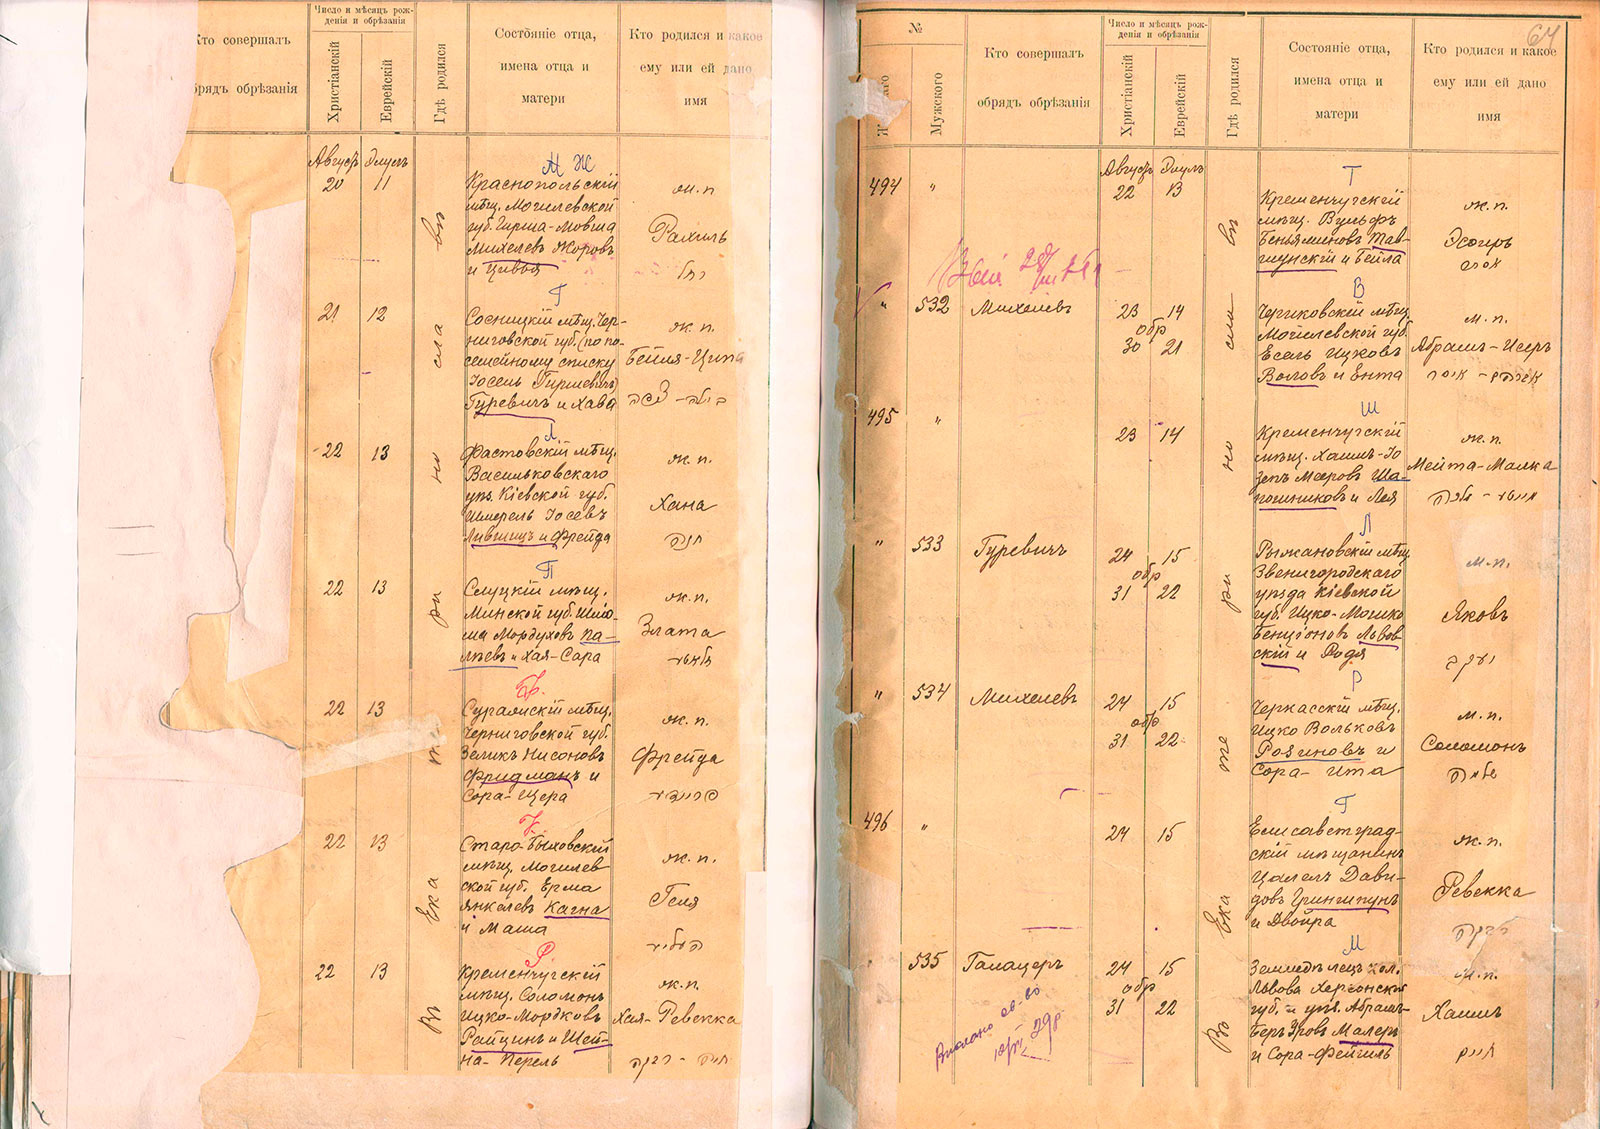 Кто совершалъ
обрядъ обрѣзанія
Число и мѣсяцъ рож-
денія и обрѣзанія
Христіанскій
Еврейскій
Гдѣ родился
Состояніе отца,
имена отца и
матери
Кто родился и какое
ему или ей дано
имя
Августъ Элулъ
20 11
М Ж
Краснопольскій
мѣщ. Могилевской
губ. Гирша-Мовша
Михелевъ Жоровъ
и Цивья
ж.п.
Рахиль
רחל
21 12
Г
Сосницкій мѣщ. Чер-
ниговской губ. (по по-
семейному списку
Іосель Гиршевичъ)
Гуревичъ и Хава
ж.п.
Бейля-Ципа
22 13
Л
Фастовскій мѣщ.
Васильковскаго
уѣз. Кіевской губ.
Шмерель Іосевъ
Лившицъ и Фрейда
ж.п.
Хана
חנה
22 13
П
Слуцкій мѣщ.
Минской губ. Шлио-
ма Мордуховъ Па-
лѣевъ и Хая-Сара
ж.п.
Злата
זלאטע
22 13
Ф.
Суражскій мѣщ.
Черниговской губ.
Зеликъ Нисоновъ
Фридманъ и
Сора-Цера
ж.п.
Фрейда
פריידע
22 13
К
Старо-Быховскій
мѣщ. Могилев
ской губ. Ерма
Янкелевъ Кагна
и Маша
ж.п.
Геня
22 13
Р
Кременчугскій
мѣщ. Соломонъ
Ицко-Мордковъ
Райцинъ и Шей-
на-Перель
ж.п.
Хая-Ревекка
חיה - רבקה
Въ Ека те ри но сла въ
64
№
Мужского
Кто совершалъ
обрядъ обрѣзанія
Число и мѣсяцъ рож-
денія и обрѣзанія
Христіанскій
Еврейскій
Гдѣ родился
Состояніе отца,
имена отца и
матери
Кто родился и какое
ему или ей дано
имя
Августъ Элулъ
494 " 22 13
Т
Кременчугскій
мѣщ. Вульфъ
Беньяминовъ Тав-
шунскій и Бейла
ж.п.
Эсѳирь
אסתר
" 532 Михелевъ
23 14
обр
30 21
В
Чериковскій мѣщ.
Могилевской губ.
Есель Ицковъ
Воловъ и Ента
м.п.
Абрамъ-Исеръ
אברהם - איסר
495 " 23 14
Ш
Кременчугскій
мѣщ. Хаимъ-Іо
зепъ Мееровъ Ша-
пошниковъ и Лея
ж.п.
Мейта-Малка
מייטע - מלכה
" 533 Гуревичъ
24 15
обр
31 22
Л
Рыжановскій мѣщ.
Звенигородскаго
уѣзда Кіевской
губ. Ицко-Мошко
Бенціоновъ Львов
скій и Родя
м.п.
Яковъ
יעקב
" 534 Михелевъ
24 15
обр
31 22
Р
Черкасскій мѣщ.
Ицко Вольковъ
Розиновъ и
Сора-Ита
м.п.
Соломонъ
שלמה
496 " 24 15
Г
Елисаветград-
скій мѣщанинъ
Цалелъ Дави-
довъ Гриншпунъ
и Двойра
ж.п.
Ревекка
רבקה
" 535 Галацеръ
24 15
обр
31 22
М
Земледѣлецъ кол.
Львова Херсонской
губ. и уѣз. Абрамъ-
Беръ Эровъ Малеръ
и Сора-Фейгиль
м.п.
Хаимъ
חיים
Выдано св-во
29г
Въ Ека те ри но сла въ